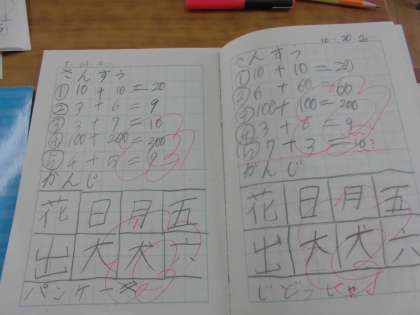 さんすう
①10 + 10 = 20
②3 + 6 = 9
③3 + 7 = 10
④100 + 200 = 200
⑤4 + 5 = 9
かんじ
花 日 月 五
出 大 犬 六
パンケーキ
さんすう
①10 + 10 = 20
② + 60 = 60
③100 + 100 = 200
④3 + 6 = 9
⑤7 + 3 = 10
かんじ
花 日 月 五
出 大 犬 六
じどうしゃ